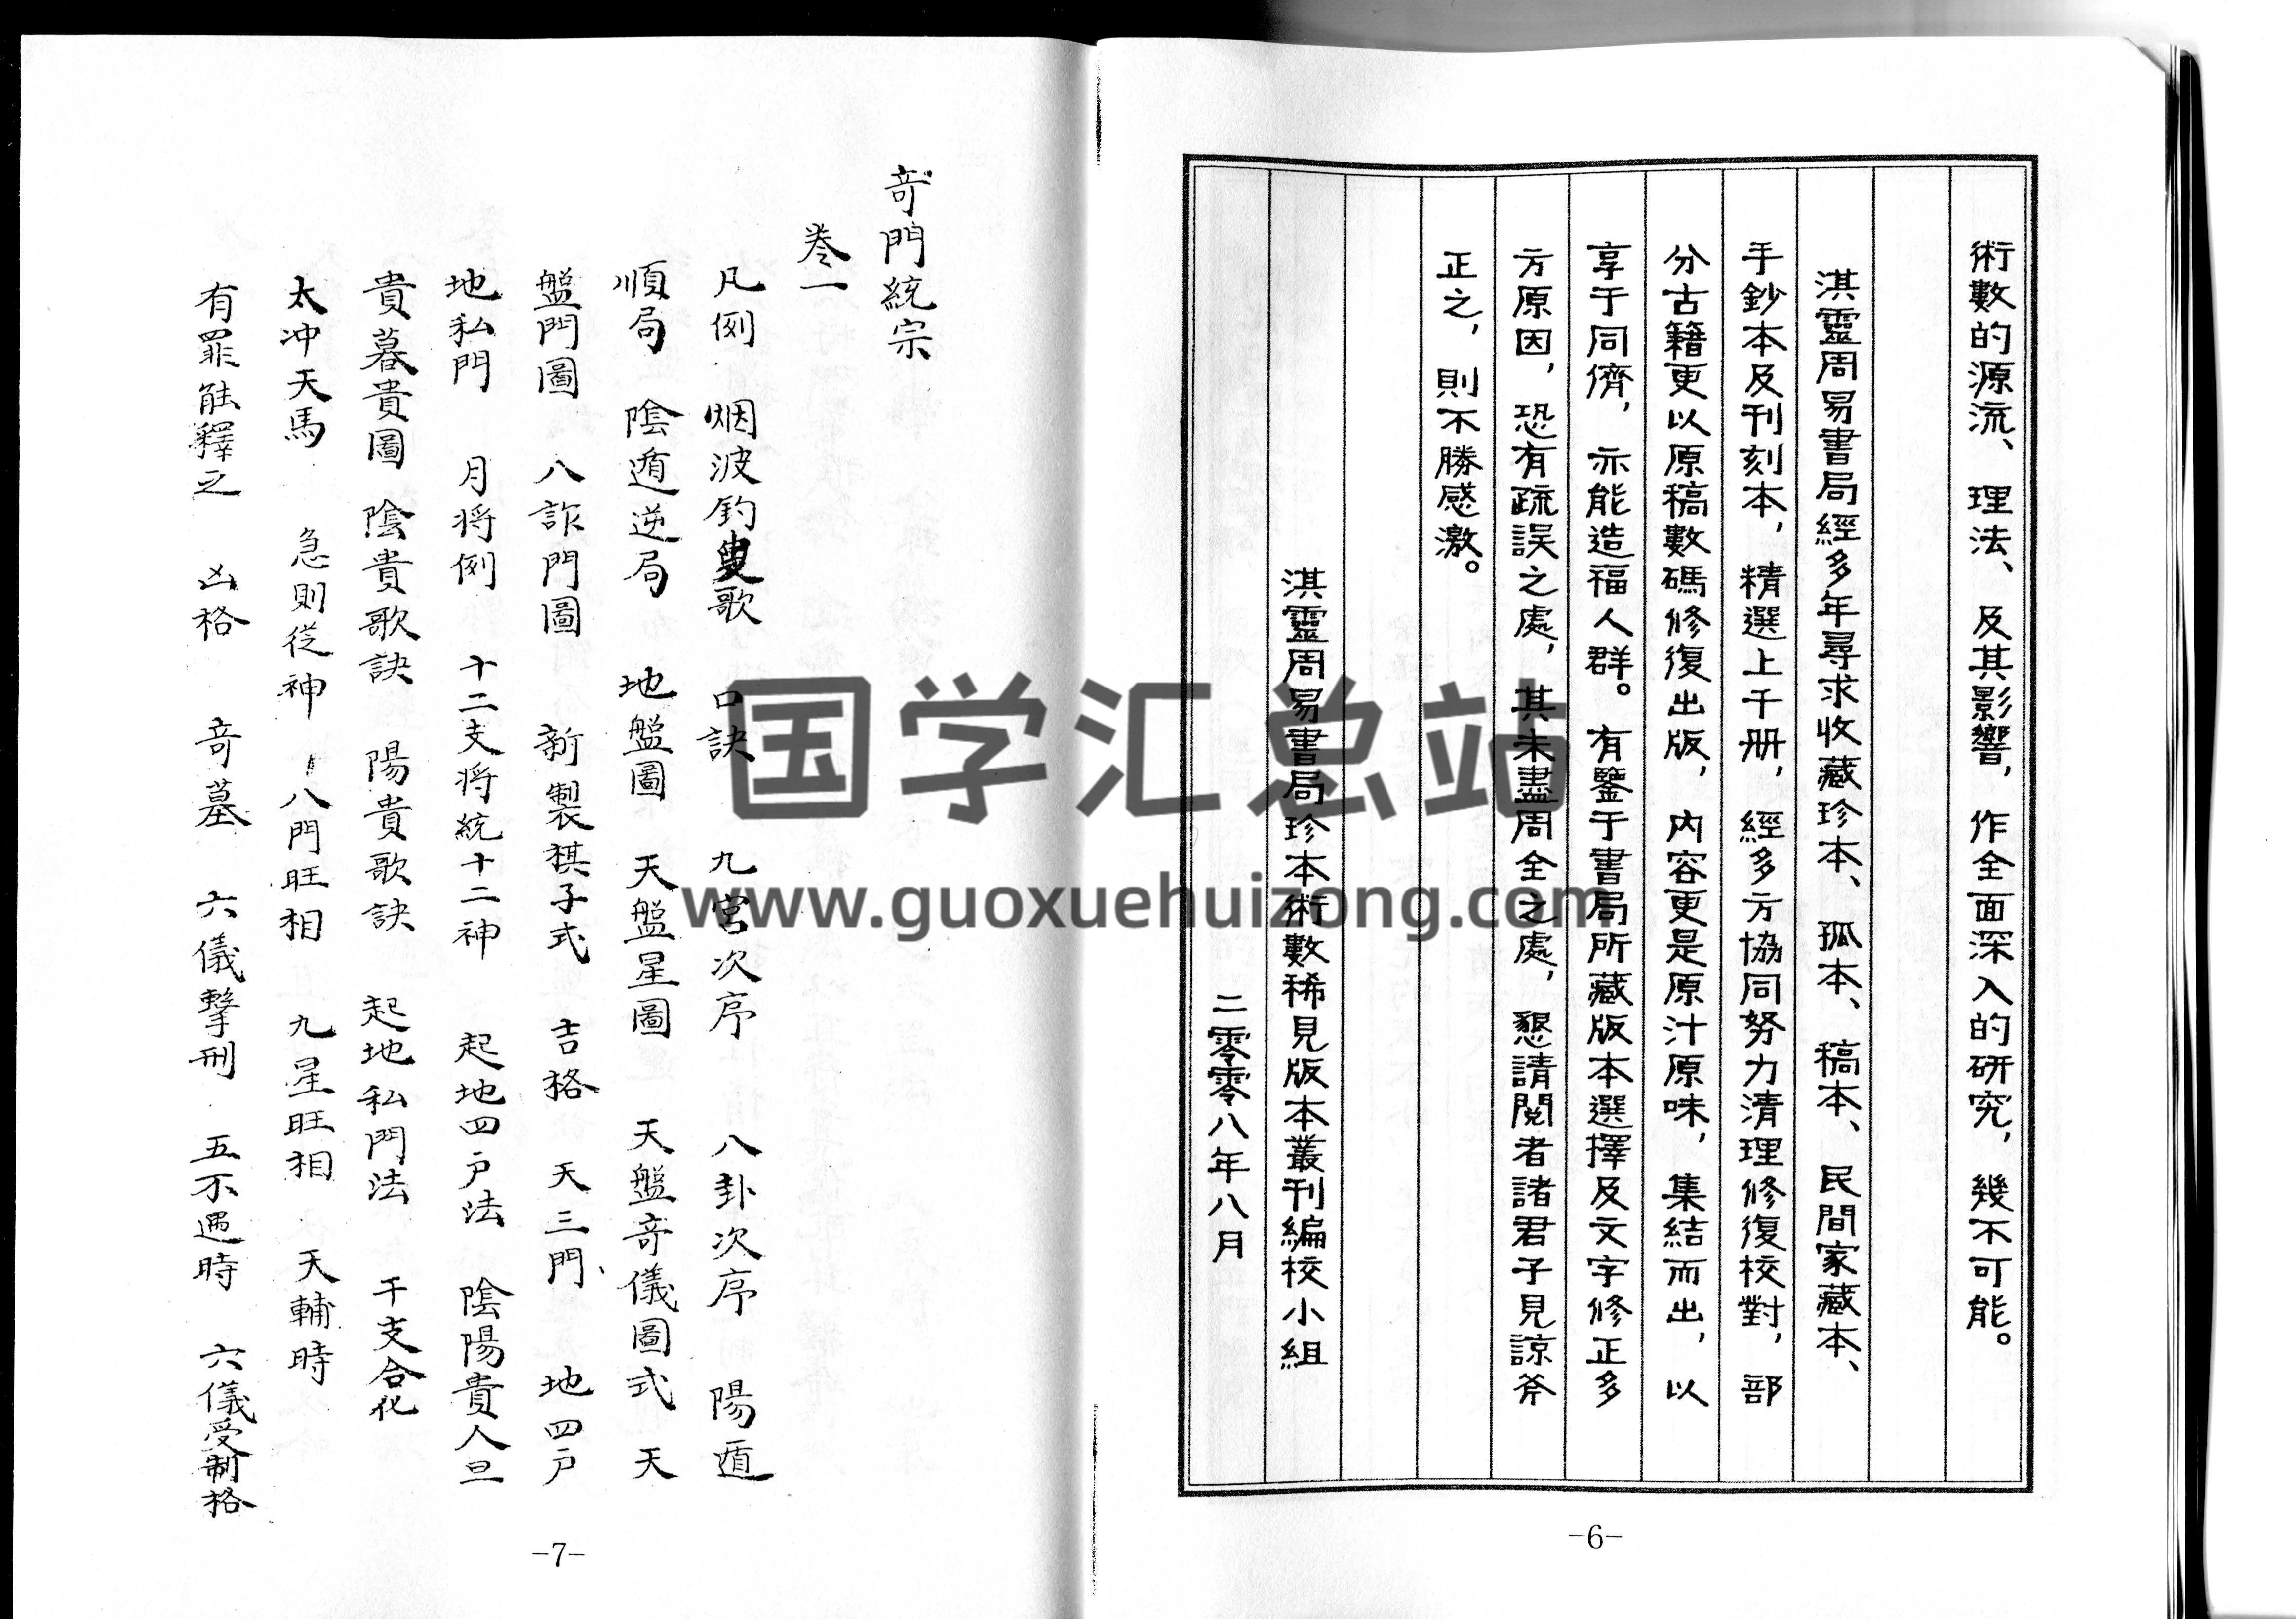 術數的源流、理法、及其影響，作全面深入的研究，幾不可能。
淇靈周易書局經多年尋求收藏珍本、孤本、稿本、民間家藏本、
手鈔本及刊刻本，精選上千册，經多方協同努力清理修復校對，部
分古籍更以原稿數碼修復出版，内容更是原汁原味，集結而出，以
享于同儕，亦能造福人群。有鑒于書局所藏版本選擇及文字修正多
方原因，恐有疏誤之處，其未盡周全之處，懇請閱者諸君子見諒斧
正之，則不勝感激。
淇靈周易書局珍本術數稀見版本叢刊編校小組
二零零八年八月
-6-
奇門統宗
卷一
凡例 烟波釣叟歌 口訣 九宮次序 八卦次序 陽遁
順局 陰遁逆局 地盤圖 天盤星圖 天盤奇儀圖式 天
盤門圖 八詐門圖 新製棋子式 吉格 天三門 地四戶
地私門 月將例 十二支將統十二神 起地四戶法 陰陽貴人旦
貴暮貴圖 陰貴歌訣 陽貴歌訣 起地私門法 干支合化
太冲天馬 急則從神 八門旺相 九星旺相 天輔時
有罪能釋之 凶格 奇墓 六儀擊刑 五不遇時 六儀受制格
-7-
国学汇总站
www.guoxuehuizong.com